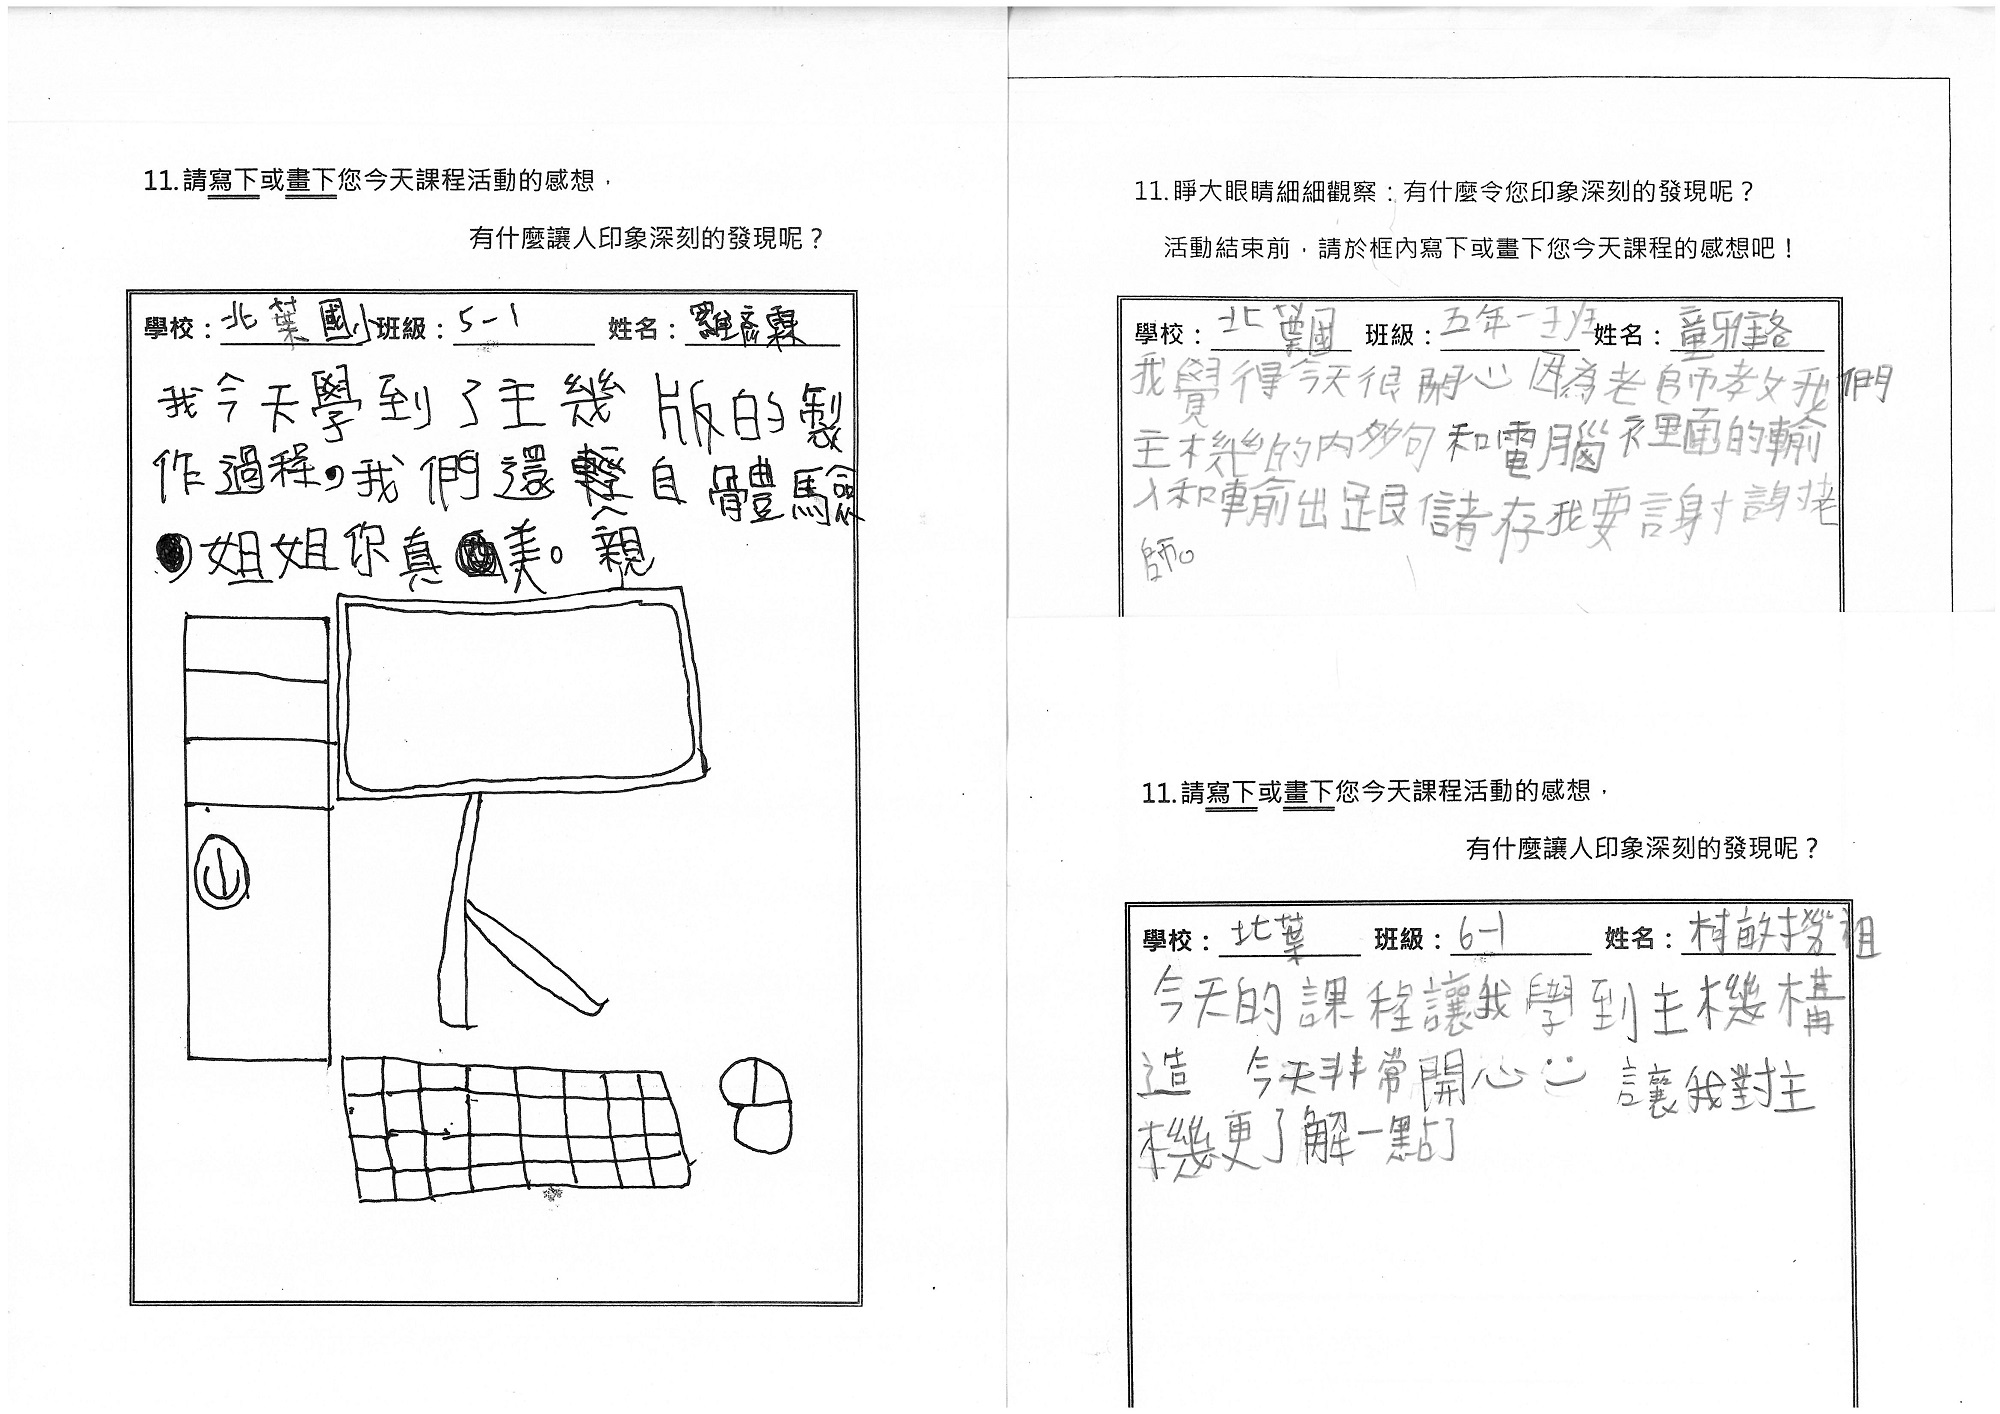 11.請寫下或畫下您今天課程活動的感想，
有什麼讓人印象深刻的發現呢？
學校：北葉國小 班級：5-1 姓名：羅喬霖
我今天學到了主幾版的製
作過程，我們還輕自體驗
親
姐姐你真美。
11.睜大眼睛細細觀察：有什麼令您印象深刻的發現呢？
活動結束前，請於框內寫下或畫下您今天課程的感想吧！
學校：北葉國 班級：五年一班 姓名：童雅路
我覺得今天很開心因為老師教我們
主機的內部和電腦裡面的輸
入和輸出跟儲存我要謝謝老
師。
11.請寫下或畫下您今天課程活動的感想，
有什麼讓人印象深刻的發現呢？
學校：北葉 班級：6-1 姓名：
今天的課程讓我學到主機構
造 今天非常開心 讓我對主
機更了解一點了